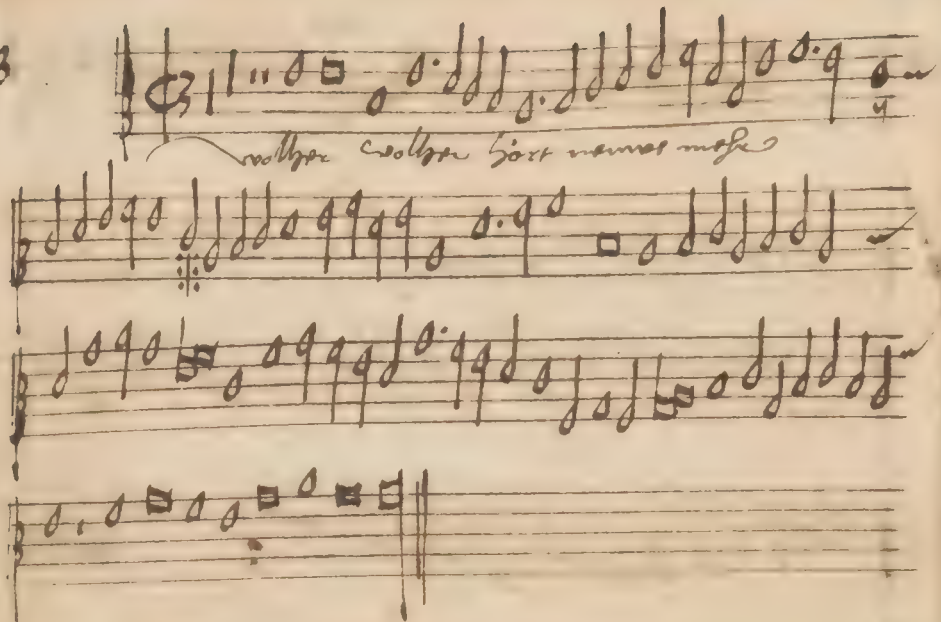 3
wolher wolher hört neuwe mehr